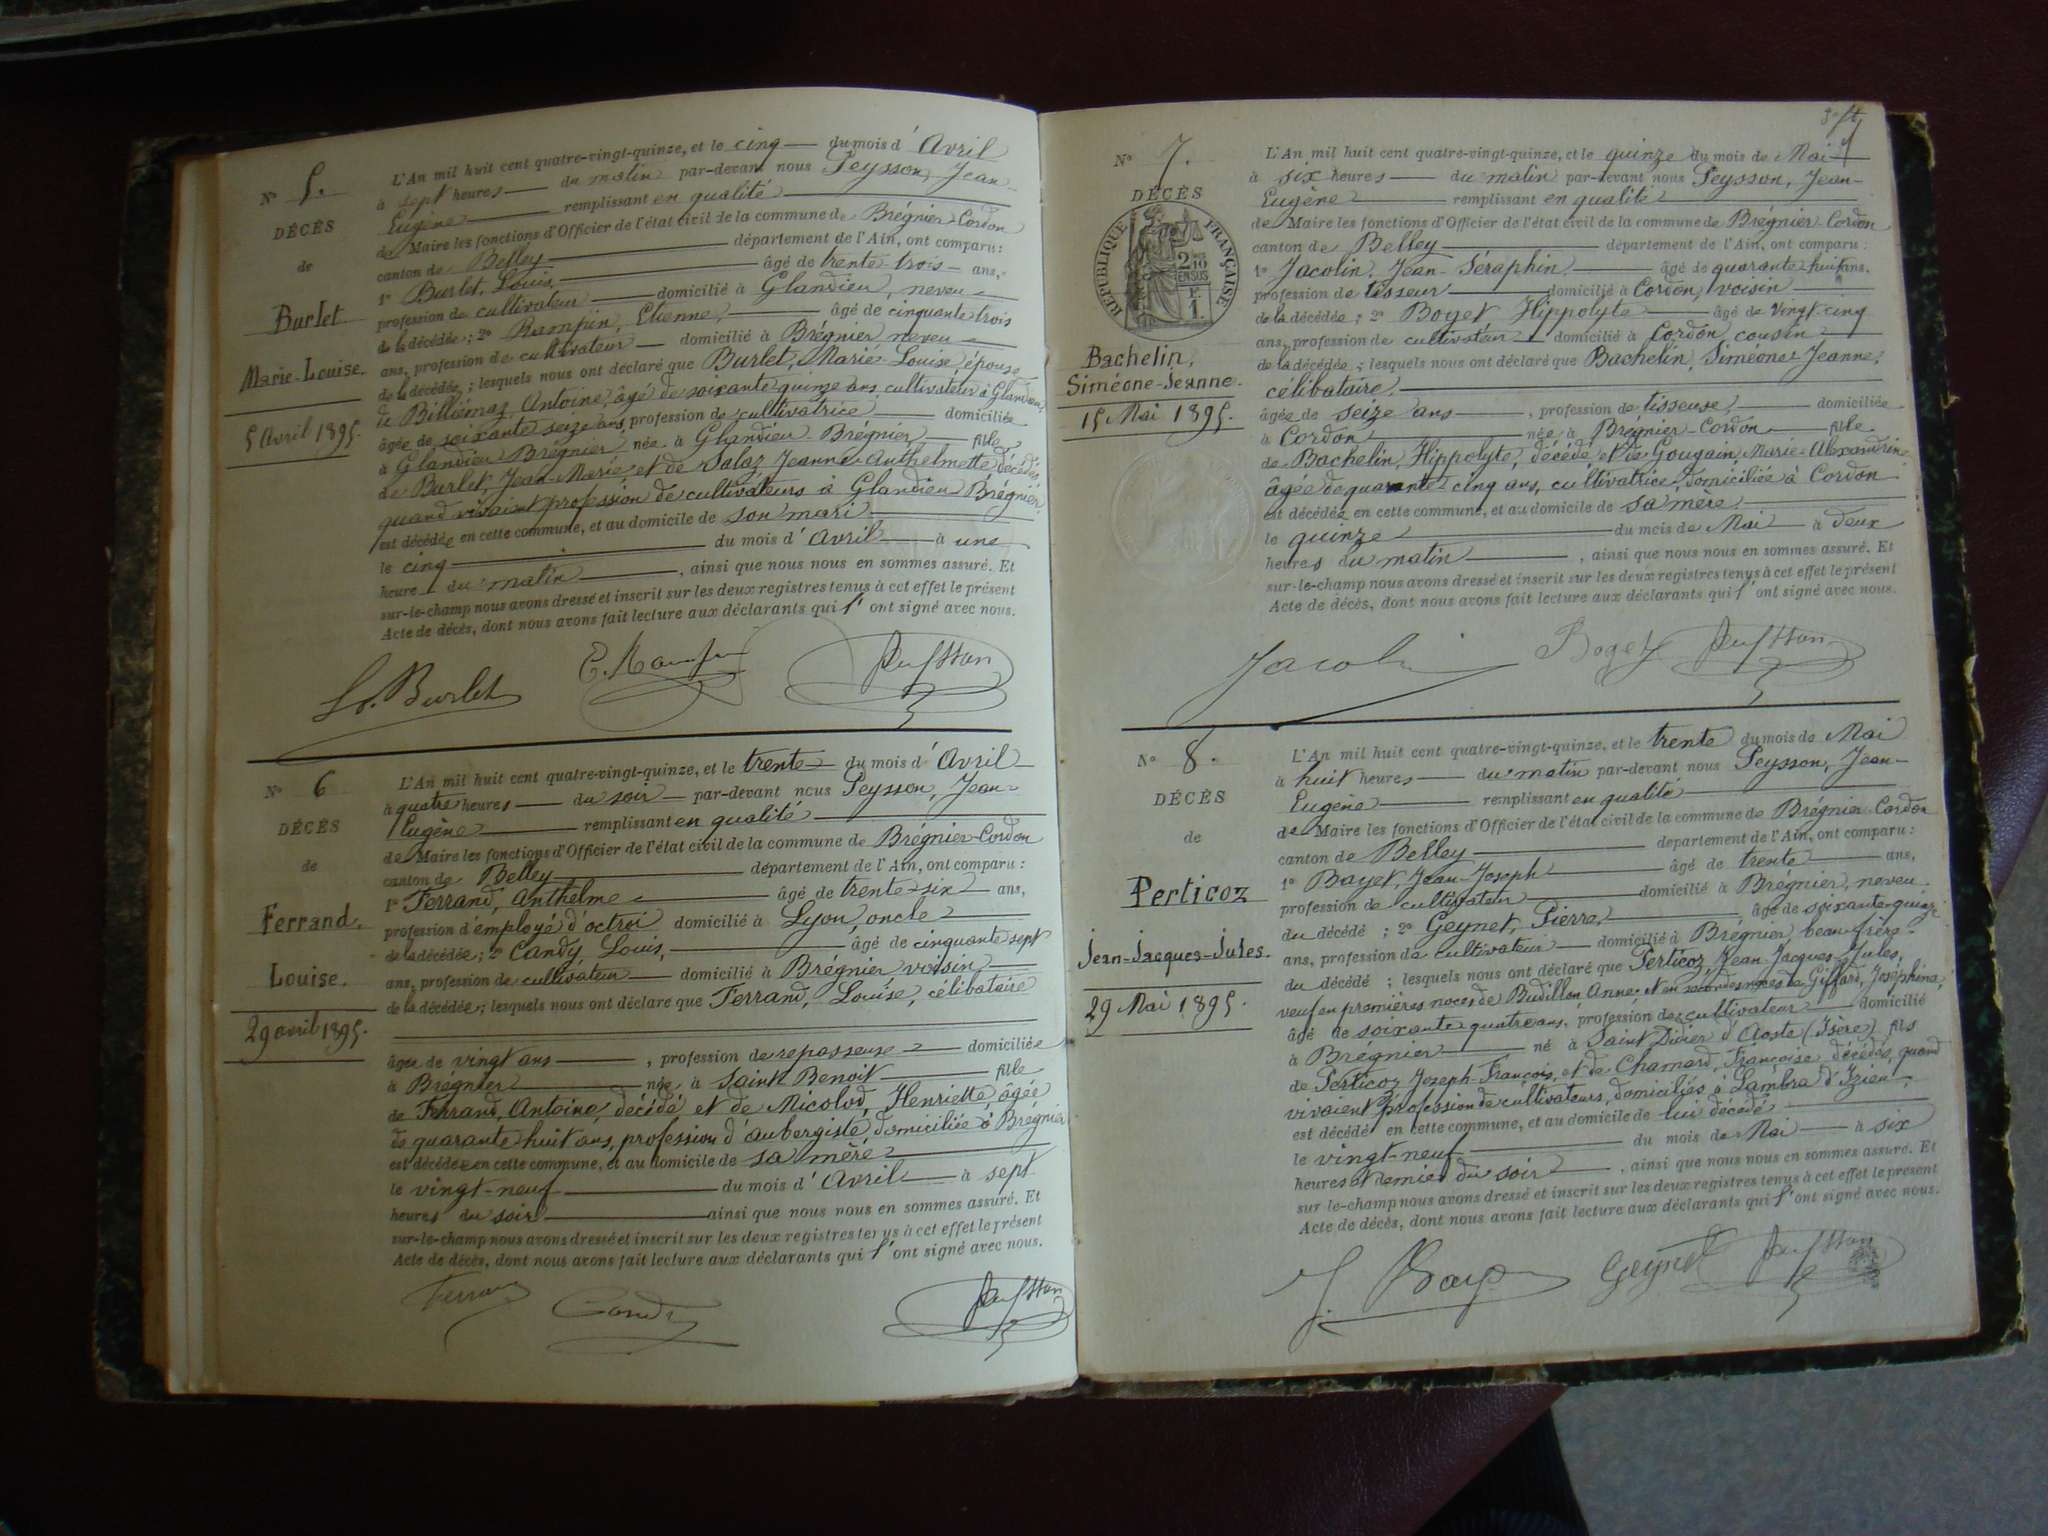 N° 5.
DÉCÈS
de
Burlet
Marie-Louise.
5 Avril 1895.
L'An mil huit cent quatre-vingt-quinze, et le cinq du mois d'Avril
à sept heures du matin par-devant nous Peysson, Jean-
Eugène remplissant en qualité
de Maire les fonctions d'Officier de l'état civil de la commune de Brégnier-Cordon
canton de Belley département de l'Ain, ont comparu :
1° Burlet, Louis, âgé de trente trois ans,
profession de cultivateur domicilié à Glandieu, neveu
de la décédée ; 2° Rampin, Etienne, âgé de cinquante trois
ans, profession de cultivateur domicilié à Brégnier neveu
de la décédée ; lesquels nous ont déclaré que Burlet, Marie-Louise, épouse
de Billiémaz, Antoine, âgé de soixante quinze ans, cultivateur à Glandieu,
âgée de soixante seize ans, profession de cultivatrice domiciliée
à Glandieu Brégnier née à Glandieu-Brégnier fille
de Burlet, Jean-Marie et de Salaz Jeanne-Anthelmette décédés
quand vivaient profession de cultivateurs à Glandieu-Brégnier,
est décédée en cette commune, et au domicile de son mari
le cinq du mois d'Avril à une
heure du matin, ainsi que nous nous en sommes assuré. Et
sur-le-champ nous avons dressé et inscrit sur les deux registres tenus à cet effet le présent
Acte de décès, dont nous avons fait lecture aux déclarants qui l'ont signé avec nous.
Ls. Burlet E. Rampin Peysson
N° 6
DÉCÈS
de
Ferrand.
Louise.
29 avril 1895.
L'An mil huit cent quatre-vingt-quinze, et le trente du mois d'Avril
à quatre heures du soir par-devant nous Peysson, Jean-
Eugène remplissant en qualité
de Maire les fonctions d'Officier de l'état civil de la commune de Brégnier-Cordon
canton de Belley département de l'Ain, ont comparu :
1° Ferrand, Anthelme âgé de trente-six ans,
profession d'employé d'octroi domicilié à Lyon, oncle
de la décédée ; 2° Candy, Louis, âgé de cinquante sept
ans, profession de cultivateur domicilié à Brégnier voisin
de la décédée ; lesquels nous ont déclaré que Ferrand, Louise, célibataire
âgée de vingt ans, profession de repasseuse domiciliée
à Brégnier née à Saint Benoit fille
de Ferrand, Antoine, décédé et de Micolod, Henriette, âgée
de quarante huit ans, profession d'aubergiste, domiciliée à Brégnier
est décédée en cette commune, et au domicile de sa mère
le vingt-neuf du mois d'Avril à sept
heures du soir ainsi que nous nous en sommes assuré. Et
sur-le-champ nous avons dressé et inscrit sur les deux registres tenus à cet effet le présent
Acte de décès, dont nous avons fait lecture aux déclarants qui l'ont signé avec nous.
Ferrand Candy Peysson
N° 7.
DÉCÈS
RÉPUBLIQUE FRANÇAISE
2/10 EN SUS
F. 1.
Bachelin,
Siméone-Jeanne.
15 Mai 1895.
L'An mil huit cent quatre-vingt-quinze, et le quinze du mois de Mai
à six heures du matin par-devant nous Peysson, Jean-
Eugène remplissant en qualité
de Maire les fonctions d'Officier de l'état civil de la commune de Brégnier-Cordon
canton de Belley département de l'Ain, ont comparu :
1° Jacolin, Jean-Séraphin âgé de quarante-huit ans.
profession de tisseur domicilié à Cordon, voisin
de la décédée ; 2° Boget Hippolyte âgé de vingt cinq
ans, profession de cultivateur domicilié à Cordon cousin
de la décédée ; lesquels nous ont déclaré que Bachelin, Siméone-Jeanne,
célibataire,
âgée de seize ans, profession de tisseuse, domiciliée
à Cordon née à Brégnier-Cordon fille
de Bachelin, Hippolyte, décédé et de Goujain, Marie-Alexandrine
âgée de quarante cinq ans, cultivatrice, domiciliée à Cordon
est décédée en cette commune, et au domicile de sa mère
le quinze du mois de Mai à deux
heures du matin, ainsi que nous nous en sommes assuré. Et
sur-le-champ nous avons dressé et inscrit sur les deux registres tenus à cet effet le présent
Acte de décès, dont nous avons fait lecture aux déclarants qui l'ont signé avec nous.
Jacolin Boget Peysson
N° 8.
DÉCÈS
de
Perticoz
Jean-Jacques-Jules.
29 Mai 1895.
L'An mil huit cent quatre-vingt-quinze, et le trente du mois de Mai
à huit heures du matin par-devant nous Peysson, Jean-
Eugène remplissant en qualité
de Maire les fonctions d'Officier de l'état civil de la commune de Brégnier-Cordon
canton de Belley département de l'Ain, ont comparu :
1° Bayet, Jean-Joseph âgé de trente ans,
profession de cultivateur domicilié à Brégnier, neveu
du décédé ; 2° Geynet, Pierre, âgé de soixante-quinze
ans, profession de cultivateur domicilié à Brégnier beau-frère
du décédé ; lesquels nous ont déclaré que Perticoz, Jean-Jacques-Jules,
veuf en premières noces de Budillon, Anne, et en secondes noces de Giffard, Joséphine,
âgé de soixante quatre ans, profession de cultivateur domicilié
à Brégnier né à Saint Didier d'Aoste (Isère) fils
de Perticoz Joseph-François, et de Chamard, Françoise décédés, quand
vivaient profession de cultivateurs, domiciliés à Lambra d'Izieu,
est décédé en cette commune, et au domicile de lui décédé
le vingt-neuf du mois de Mai à six
heures et demie du soir, ainsi que nous nous en sommes assuré. Et
sur-le-champ nous avons dressé et inscrit sur les deux registres tenus à cet effet le présent
Acte de décès, dont nous avons fait lecture aux déclarants qui l'ont signé avec nous.
J. Bayet Geynet Peysson